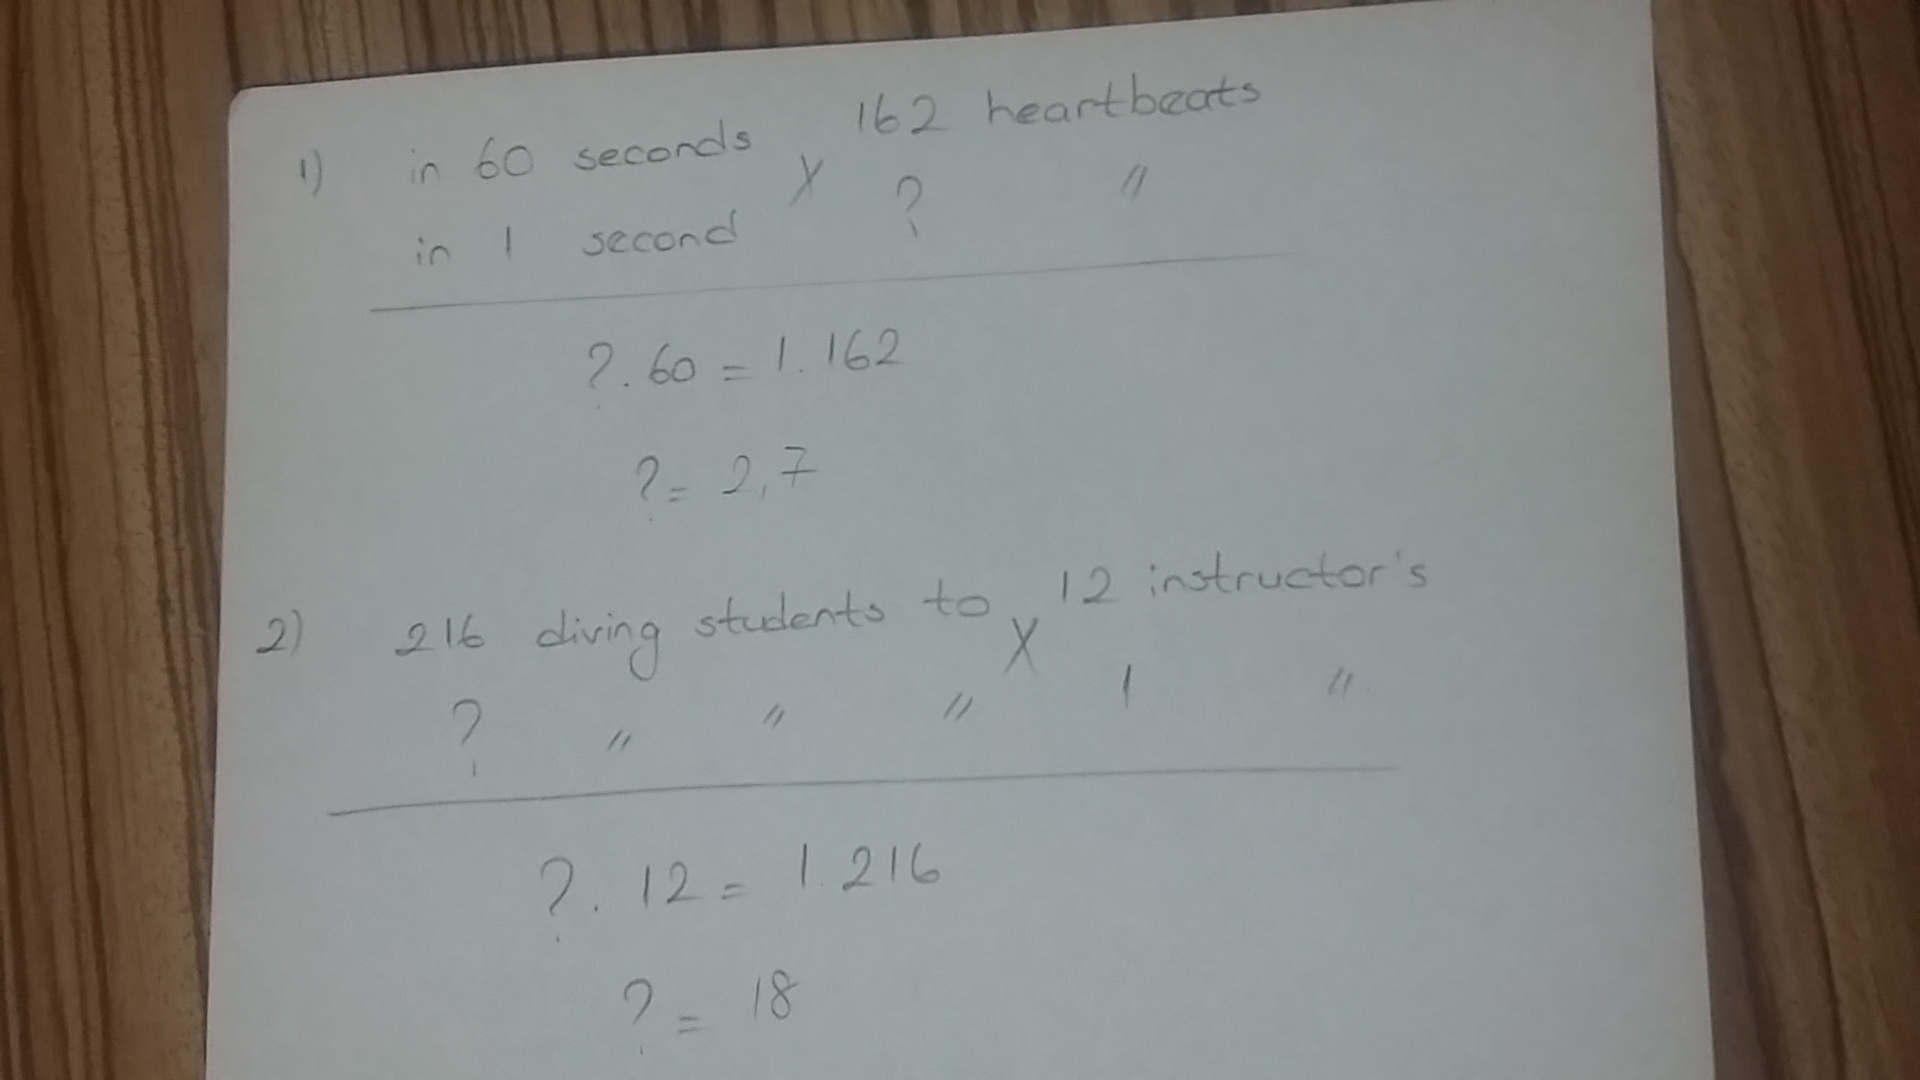 1) in 60 seconds X 162 heartbeats
in 1 second ? "
?.60 = 1.162
? = 2,7
2) 216 diving students to X 12 instructor's
? " " " 1 "
?.12 = 1.216
? = 18